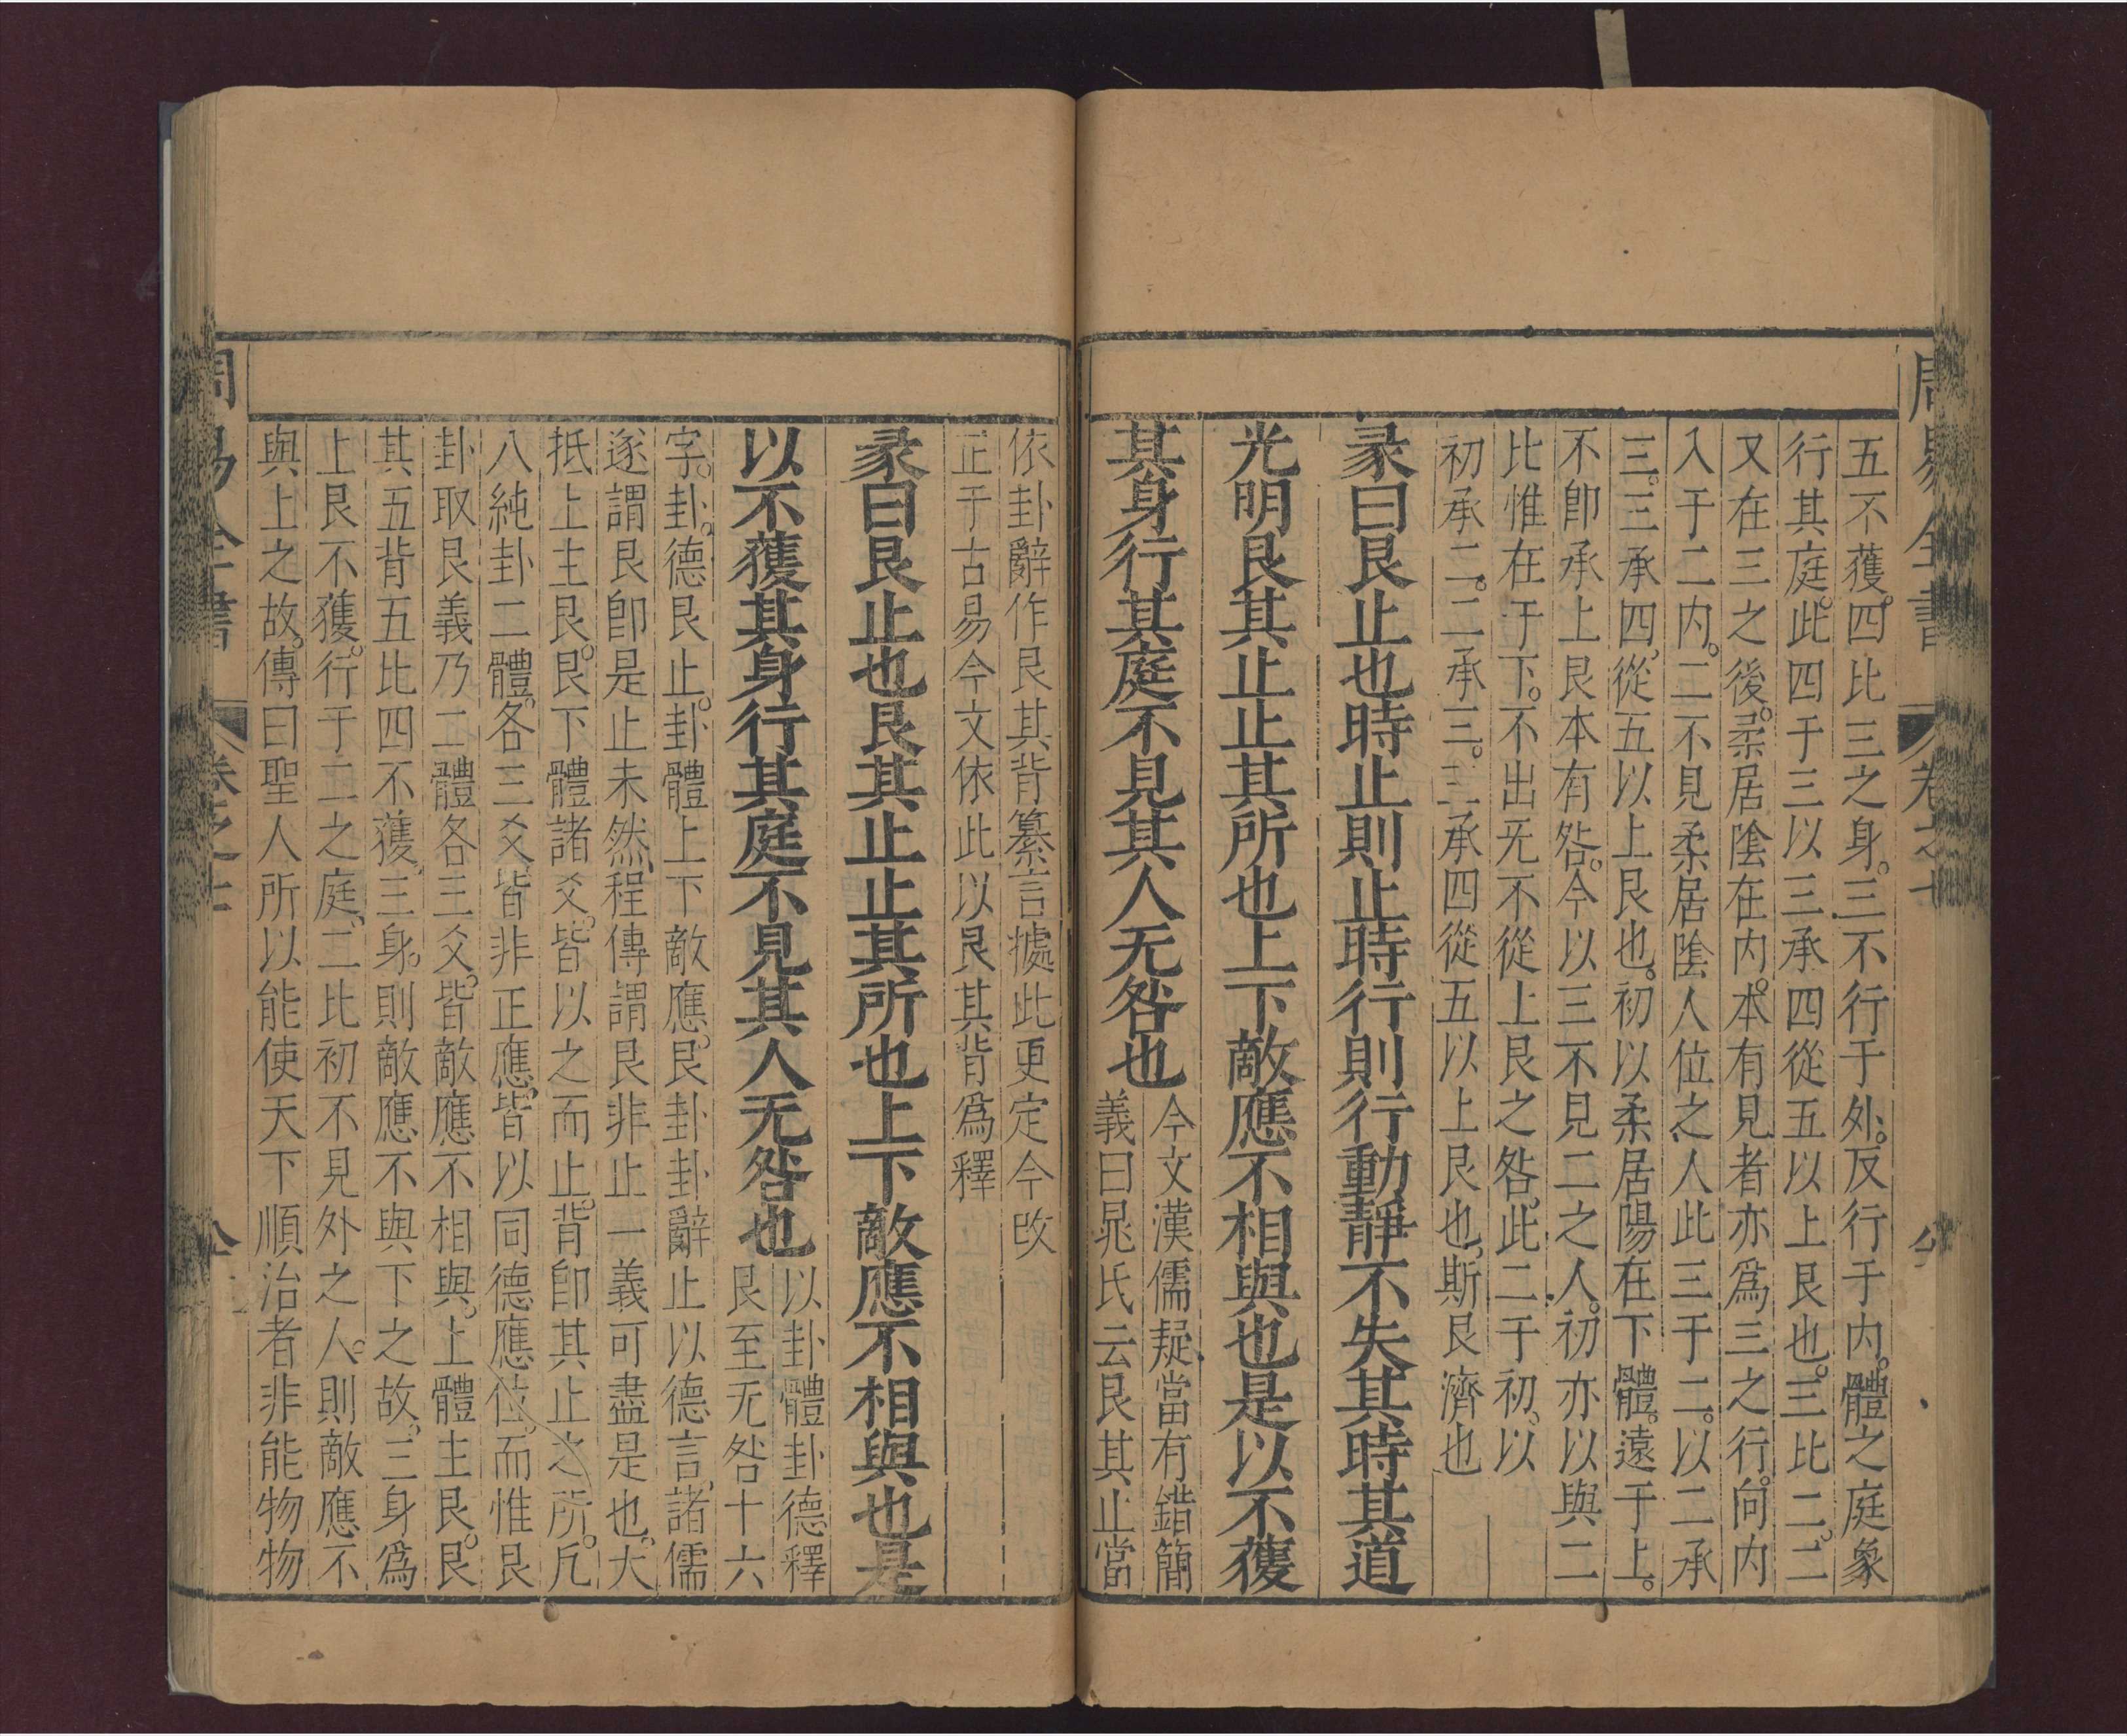 周易全書 卷之十
五不獲。四比三之身。三不行于外。反行于内。體之庭象
行其庭。此四于三以三承四從五以上艮也。三比二。二
又在三之後。柔居陰在内。本有見者亦爲三之行。向内
入于二内。二不見柔居陰人位之人此三于二。以二承
三。三承四。從五以上艮也。初以柔居陽在下體。遠于上。
不卽承上艮本有咎。今以三不見二之人。初亦以與二
比惟在于下。不出无不從上艮之咎。此二于初。以
初承二。二承三。三承四從五以上艮也。斯艮濟也
彖曰艮止也時止則止時行則行動靜不失其時其道
光明艮其止止其所也上下敵應不相與也是以不獲
其身行其庭不見其人无咎也
今文漢儒疑當有錯簡
義曰晁氏云艮其止當
依卦辭作艮其背纂言據此更定今改
正于古易今文依此以艮其背爲釋
彖曰艮止也艮其止止其所也上下敵應不相與也是
以不獲其身行其庭不見其人无咎也
以卦體卦德釋
艮至无咎十六
字。卦德艮止。卦體上下敵應。艮卦卦辭止以德言。諸儒
遂謂艮卽是止未然。程傳謂艮非止一義可盡是也。大
抵上主艮。艮下體諸爻。皆以之而止。背卽其止之所。凡
八純卦二體。各三爻。皆非正應。皆以同德應位。而惟艮
卦取艮義乃二體各三爻。皆敵應不相與。上體主艮。艮
其五背五比四不獲。三身。則敵應不與下之故。三身爲
上艮不獲。行于二之庭。二比初不見外之人。則敵應不
與上之故。傳曰聖人所以能使天下順治者非能物物
周易全書 卷之十